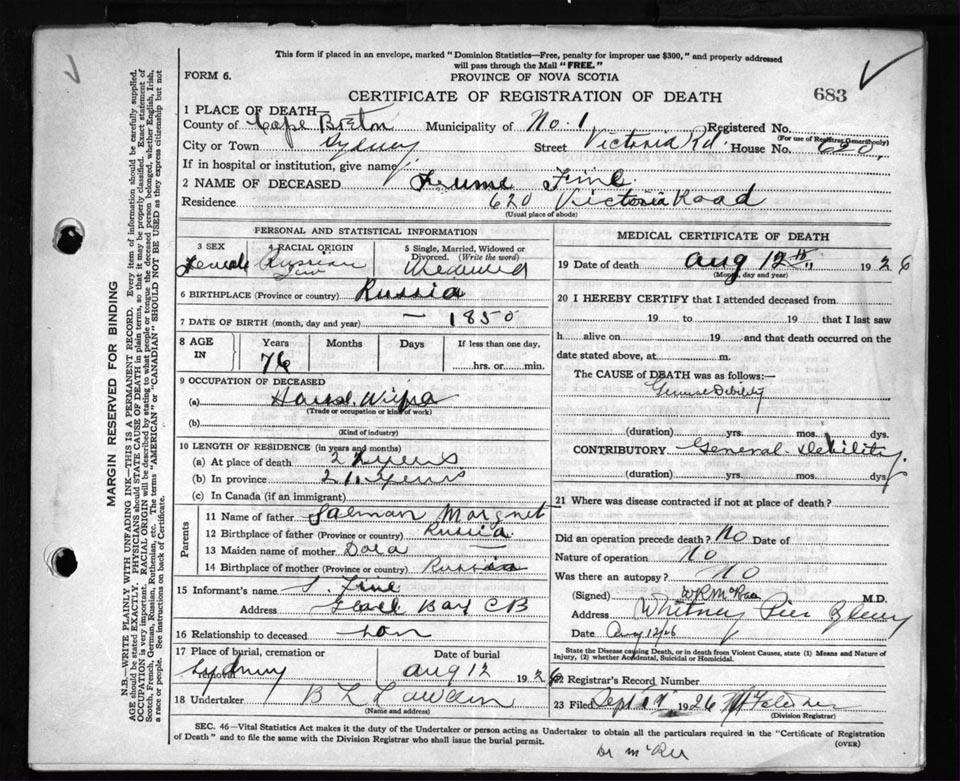 This form if placed in an envelope, marked "Dominion Statistics—Free, penalty for improper use $300," and properly addressed
will pass through the Mail "FREE."
FORM 6.
PROVINCE OF NOVA SCOTIA
CERTIFICATE OF REGISTRATION OF DEATH
683
1 PLACE OF DEATH—
County of Cape Breton Municipality of No. 1 Registered No.
(For use of Registrar Generalonly)
City or Town Sydney Street Victoria Rd. House No. 620.
If in hospital or institution, give name
2 NAME OF DECEASED Fine
Residence 620 Victoria Road
(Usual place of abode)
PERSONAL AND STATISTICAL INFORMATION
3 SEX
Female
4 RACIAL ORIGIN
Russian
Jew
5 Single, Married, Widowed or
Divorced. (Write the word)
Widowed
6 BIRTHPLACE (Province or country) Russia
7 DATE OF BIRTH (month, day and year) — 1850
8 AGE IN
Years Months Days If less than one day,
76 hrs. or min.
9 OCCUPATION OF DECEASED
(a) House Wife
(Trade or occupation or kind of work)
(b)
(Kind of industry)
10 LENGTH OF RESIDENCE (in years and months)
(a) At place of death 2 years
(b) In province years
(c) In Canada (if an immigrant)
Parents
11 Name of father
12 Birthplace of father (Province or country) Russia
13 Maiden name of mother —
14 Birthplace of mother (Province or country) Russia
15 Informant's name S. Fine
Address Bay CB
16 Relationship to deceased son
17 Place of burial, cremation or
removal
Sydney
Date of burial
Aug 12 1926
18 Undertaker B L
(Name and address)
MEDICAL CERTIFICATE OF DEATH
19 Date of death Aug 12th 1926
(Month, day and year)
20 I HEREBY CERTIFY that I attended deceased from
19 to 19 that I last saw
h alive on 19 and that death occurred on the
date stated above, at m.
The CAUSE of DEATH was as follows:—
Debility
(duration) yrs. mos. dys.
CONTRIBUTORY General Debility.
(duration) yrs. mos. dys.
21 Where was disease contracted if not at place of death?
Did an operation precede death? No Date of
Nature of operation No
Was there an autopsy? No
(Signed) M.D.
Address Whitney Pier
Date Aug 12/26
State the Disease causing Death, or in death from Violent Causes, state (1) Means and Nature of
Injury, (2) whether Accidental, Suicidal or Homicidal.
22 Registrar's Record Number
23 Filed Sept 1926
(Division Registrar)
SEC. 46—Vital Statistics Act makes it the duty of the Undertaker or person acting as Undertaker to obtain all the particulars required in the "Certificate of Registration
of Death" and to file the same with the Division Registrar who shall issue the burial permit.
(OVER)
Dr
MARGIN RESERVED FOR BINDING
N.B.—WRITE PLAINLY WITH UNFADING INK—THIS IS A PERMANENT RECORD. Every item of information should be carefully supplied.
AGE should be stated EXACTLY. PHYSICIANS should STATE CAUSE OF DEATH in plain terms, so that it may be properly classified. Exact statement of
OCCUPATION is very important. RACIAL ORIGIN will be described by stating to what people or tongue the deceased person belonged, whether English, Irish,
Scotch, French, German, Russian, Ruthenian, etc. The terms "AMERICAN" or "CANADIAN" SHOULD NOT BE USED as they express citizenship but not
a race or people. See instructions on back of Certificate.